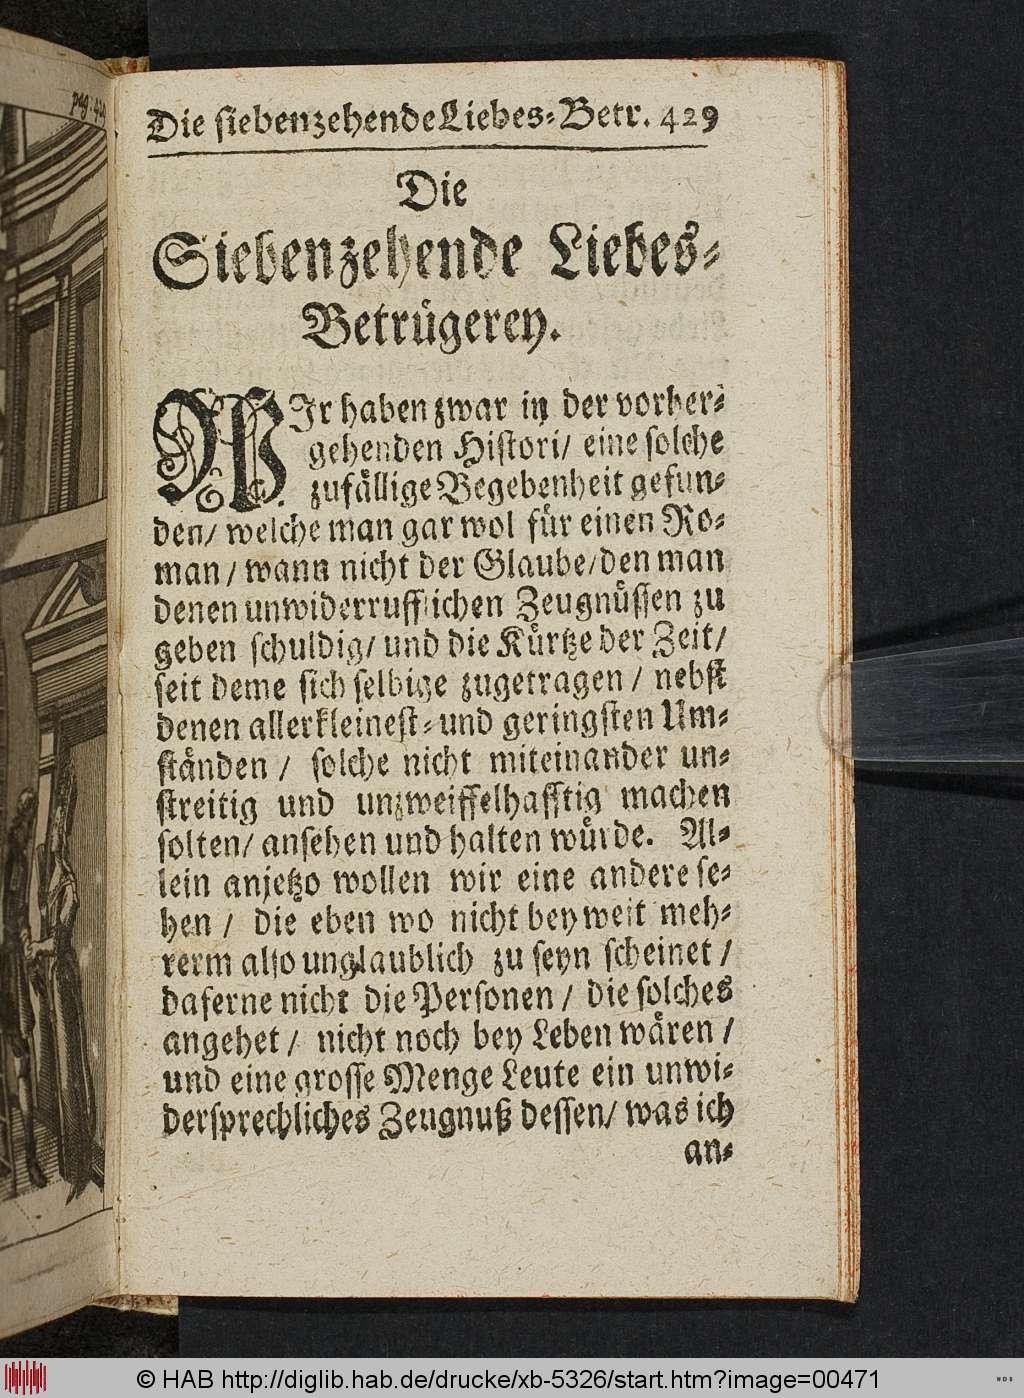 pag: 429
Die siebenzehende Liebes-Betr. 429
Die
Siebenzehende Liebes-
Betrügerey.
WIr haben zwar in der vorher-
gehenden Histori/ eine solche
zufällige Begebenheit gefun-
den/ welche man gar wol für einen Ro-
man/ wann nicht der Glaube/ den man
denen unwiderrufflichen Zeugnüssen zu
geben schuldig/ und die Kürtze der Zeit/
seit deme sich selbige zugetragen/ nebst
denen allerkleinest- und geringsten Um-
ständen/ solche nicht miteinander un-
streitig und unzweiffelhafftig machen
solten/ ansehen und halten würde. Al-
lein anjetzo wollen wir eine andere se-
hen/ die eben wo nicht bey weit meh-
rerm also unglaublich zu seyn scheinet/
daferne nicht die Personen/ die solches
angehet/ nicht noch bey Leben wären/
und eine grosse Menge Leute ein unwi-
dersprechliches Zeugnuß dessen/ was ich
an-
© HAB http://diglib.hab.de/drucke/xb-5326/start.htm?image=00471